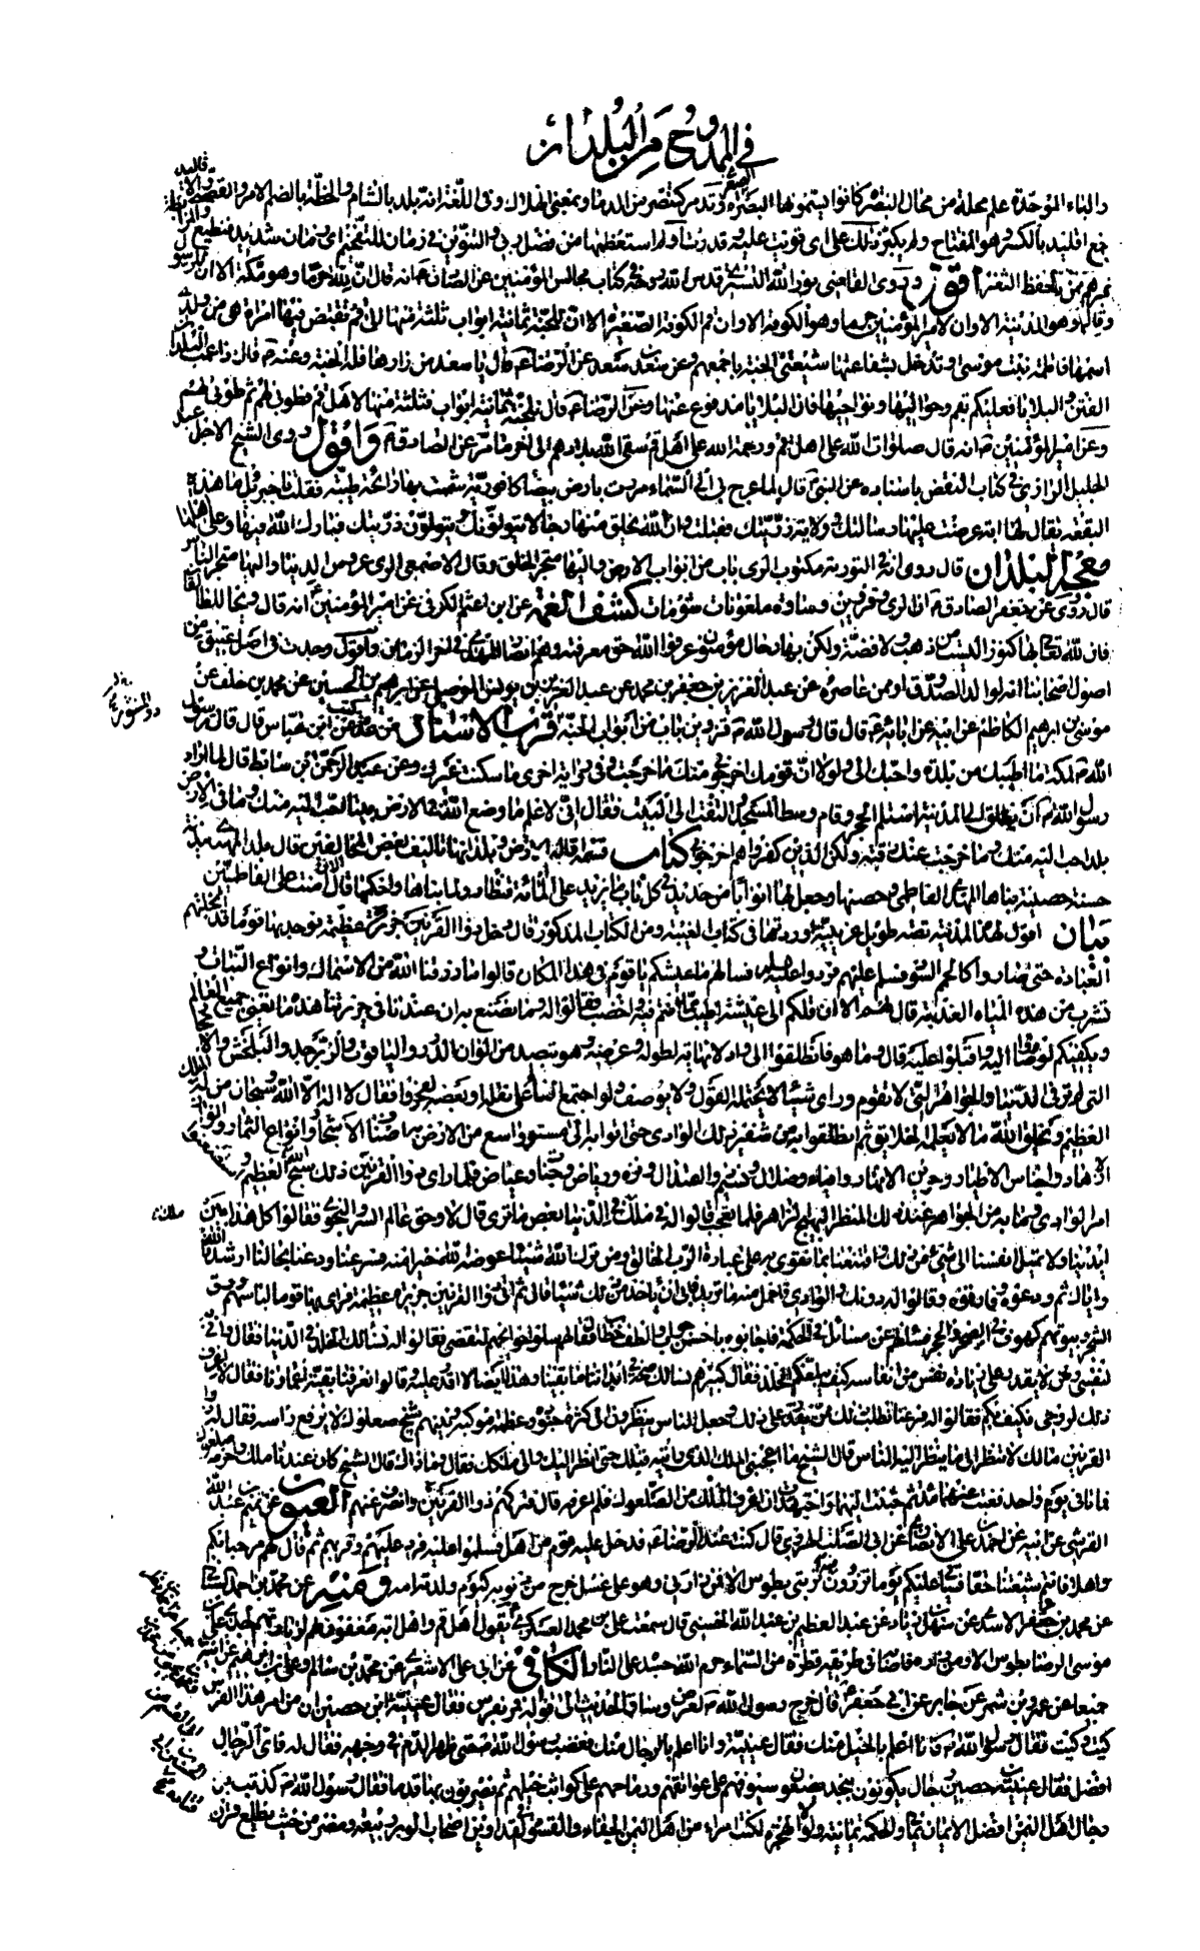 في الممدوح من البلدان
والباء الموحّدة علم محلة من محال البصرة كانوا يسمونها البصرة وتدمر كتنصر من الدمار ومعنى الهلاك وفي اللّغة انه بلد بالشام والخطّة بالضم الامر والقصة والاقاليد
جمع اقليد بالكسر وهو المفتاح ولم يكبر ذلك على اي قويت عليه وقدرت او لم استعظمها من فضل ربي والتنوين في زمان للتفخيم اي زمان شديد فظيع
اقول روى القاضي نور الله التستري قدس الله روحه في كتاب مجالس المؤمنين عن الصادق انه قال انّ لله حرما وهو مكّة الا ان لرسول
وهو المدينة الا وان لامير المؤمنين حرما وهو الكوفة الا وان قم الكوفة الصّغيرة الا انّ للجنّة ثمانية ابواب ثلثة منها الى قم تقبض فيها امراة هي من ولدي
اسمها فاطمة بنت موسى تدخل بشفاعتها شيعتي الجنة باجمعهم وعن سعد بن سعد عن الرّضا قال يا سعد من زارها فله الجنة وعنه قال اذا عمت البلدان
الفتن والبلايا فعليكم بقم وحواليها ونواحيها فان البلايا مدفوع عنها وعن الرّضا قال للجنّة ثمانية ابواب فثلثة منها لاهل قم فطوبى لهم ثم طوبى لهم
وعن امير المؤمنين انه قال صلوات الله على اهل قم ورحمة الله على اهل قم سقى الله بلادهم الى اخر ما مر عن الصادق واقول روى الشيخ الاجل عبد
الجليل الرّازي في كتاب النقض باسناده عن النبي قال لما عرج بي الى السّماء مررت بارض بيضاء كافورية شممت بها رائحة طيبة فقلت يا جبرئيل ما هذه
البقعة فقال لها ابه عرضت عليها رسالتك وولاية ذرّيّتك فقبلت وان الله يخلق منها رجالا يتولّونك ويتولّون ذرّيتك فبارك الله فيها وعلى اهلها
معجم البلدان قال روى انه في التورية مكتوب الري باب من ابواب الارض واليها متجر الخلق وقال الاصمعي الري عروس الدنيا واليها متجر الناس
قال روى عن جعفر الصادق ان الري وقزوين وساوه ملعونات شؤمات كشف الغمة عن ابن اعثم الكوفي عن امير المؤمنين انه قال ويحا للطالقان
فان لله تعالى بها كنوزا ليست من ذهب ولا فضّة ولكن بها رجال مؤمنون عرفوا الله حق معرفته وهم انصار المهدي في اخر الزمان واقول وجدت في اصل عتيق من
اصول اصحابنا اظنه لوالد الصّدوق او من عاصره عن عبد العزيز بن جعفر بن محمد عن عبد العزيز بن يونس الموصلي عن ابراهيم بن الحسين عن محمد بن خلف عن
موسى بن ابراهيم الكاظم عن ابيه عن ابائه قال قال رسول الله قزوين باب من ابواب الجنّة قرب الاسناد عن ابن عبّاس قال قال رسول
الله لمكة ما اطيبك من بلدة واحبك الي ولولا انّ قومك اخرجوني منك ما خرجت وفي رواية اخرى ما سكنت غيرك وعن عبد الرّحمن بن سابط قال لما اراد
رسول الله ان ينطلق الى المدينة استلم الحجر وقام وسط المسجد والتفت الى البيت فقال اني لاعلم ما وضع الله في الارض بيتا احب اليه منك وما في الارض
بلد احب اليه منك وما خرجت عنك رغبة ولكن الذين كفروا هم اخرجوني كتاب قسمة اقاليم الارض وبلدانها تاليف بعض المخالفين قال بلد المهدية مدينة
حسنة حصينة بناها المهدي الفاطمي وحصنها وجعل لها ابوابا من حديد في كل باب ما يزيد على المائة قنطار ولما بناها واحكمها قال الان امنت على الفاطميين
بيان اقول لهذه المدينة قصة طويلة غريبة اوردتها في كتاب الغيبة ومن الكتاب المذكور قال دخل ذو القرنين جزيرة عظيمة فوجد بها قوما قد انحلتهم
العبادة حتى صاروا كالحمم السّود فسلم عليهم فردوا عليه السلام فسالهم ما عيشكم يا قوم في هذا المكان قالوا ما رزقنا الله من الاسماك وانواع النّبات و
نشرب من هذه المياه العذبة قال لهم الا انقلكم الى عيشة اطيب مما انتم فيه واخصب فقالوا له وما نصنع به ان عندنا في جزيرتنا هذه ما يغني جميع العالم
ويكفيهم لو صاروا اليه واقبلوا عليه قال وما هو فانطلقوا به الى واد لا نهاية لطوله وعرضه وهو منضد من الوان الدّر والياقوت والزبرجد والبلخش والاحجار
التي لم تر في الدّنيا والجواهر الّتي لا تقوم وراى شيئا لا يحتمله العقول ولا يوصف ولو اجتمع العالم على نقله او بعضه لعجزوا فقال لا اله الّا الله سبحان من له الملك
العظيم ويخلق الله ما لا يعلمه الخلايق ثم انطلقوا به من شفير ذلك الوادي حتى اتوا به الى مستو واسع من الارض به اصناف الاشجار وانواع الثمار والوان
الازهار واجناس الاطيار وخرير الانهار وافياء وظلال ونسيم واعتدال ونزه ورياض وجنات وغياض فلما راى ذو القرنين ذلك سبّح الله العظيم و
امر الوادي وما به من الجواهر عند ذلك المنظر البهيج الزاهر فلما تعجب قالوا له في ملك في الدّنيا بعض ما ترى قال لا وحق عالم السّر والنجوى فقالوا كل هذا بين
ايدينا ولا تميل انفسنا الى شيء من ذلك وقنعنا بما نقوى به على عبادة الرّب الخالق ومن ترك لله شيئا عوضه الله خيرا منه فسر عنا ودعنا بحالنا ارشدنا الله
واياك ثم ودعوه وفارقوه وقالوا له دونك والوادي فاحمل منه ما تريد فابى ان ياخذ من ذلك شيئا قال ثم اتى ذو القرنين جزيرة عظيمة فراى بها قوما لباسهم ورق
الشجر وبيوتهم كهوف في الصخر والحجر فسالهم عن مسائل في الحكمة فاجابوه باحسن جواب والطف خطاب فقال لهم سلوا حوائجكم لتقضى فقالوا له نسالك الخلد في الدّنيا فقال وانّى
لنفسي ومن لا يقدر على زيادة نفس من انفاسه كيف يبلغكم الخلد فقال كبيرهم نسالك صحة في ابداننا ما بقينا وهذا ايضا لا اقدر عليه قالوا فعرفنا بقية اعمارنا فقال لا اعرف
ذلك لروحي فكيف بكم فقالوا له فدعنا نطلب ذلك ممن يقدر على ذلك وجعل الناس ينظرون الى كثرة جنوده وعظمة موكبه وبينهم شيخ صعلوك لا يرفع راسه فقال له ذو
القرنين مالك لا تنظر الى ما ينظر اليه الناس قال الشيخ ما اعجبني الملك الذي رايته قبلك حتى انظر اليك والى ملكك فقال وما ذاك قال الشيخ كان عندنا ملك واخر صعلوك
فماتا في يوم واحد فغبت عنهما مدّة ثم جئت اليهما واجتهدت ان اعرف الملك من الصّعلوك فلم اعرفه قال فتركهم ذو القرنين وانصرف عنهم العيون عن تميم بن عبد الله
القرشي عن ابيه عن احمد بن علي الانصاري عن ابي الصّلت الهروي قال كنت عند الرّضا فدخل عليه قوم من اهل قم فسلموا عليه فرد عليهم وقربهم ثم قال لهم مرحبا بكم
واهلا فانتم شيعتنا حقا فسياتي عليكم يوم تزورون فيه تربتي بطوس الا فمن زارني وهو على غسل خرج من ذنوبه كيوم ولدته امه ومنه عن محمد بن احمد السناني
عن محمد بن جعفر الاسدي عن سهل بن زياد عن عبد العظيم بن عبد الله الحسني قال سمعت علي بن محمد العسكري يقول اهل قم واهل ابه مغفور لهم لزيارتهم لجدي علي بن
موسى الرضا بطوس الا ومن زاره فاصابه في طريقه قطرة من السّماء حرم الله جسده على النار الكافي عن ابي علي الاشعري عن محمد بن سالم وعلي بن ابراهيم عن ابيه
جميعا عن عمرو بن شمر عن جابر عن ابي جعفر قال خرج رسول الله لعرض وساق الحديث الى قوله فقال عيينة بن حصين ان من امر هذا الفرس
كيت وكيت فقال رسول الله فانا اعلم بالخيل منك فقال عيينة وانا اعلم بالرجال منك فغضب رسول الله حتى ظهر الدّم في وجهه فقال له فاي الرّجال
افضل فقال عيينة بن حصين رجال يكونون بنجد يضعون سيوفهم على عواتقهم ورماحهم على كواثب خيلهم ثم يضربون بها قدما فقال رسول الله كذبت بل
رجال اهل اليمن افضل الايمان يماني والحكمة يمانية ولولا الهجرة لكنت امرء من اهل اليمن الجفاء والقسوة في الفدادين اصحاب الوبر ربيعة ومضر من حيث يطلع قرن